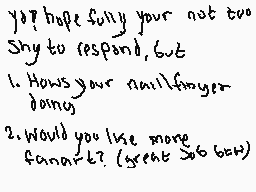 yo? hope fully your not too
shy to respond, but
1. Hows your nail/finger
doing
2. would you like more
fanart? (great job btw)